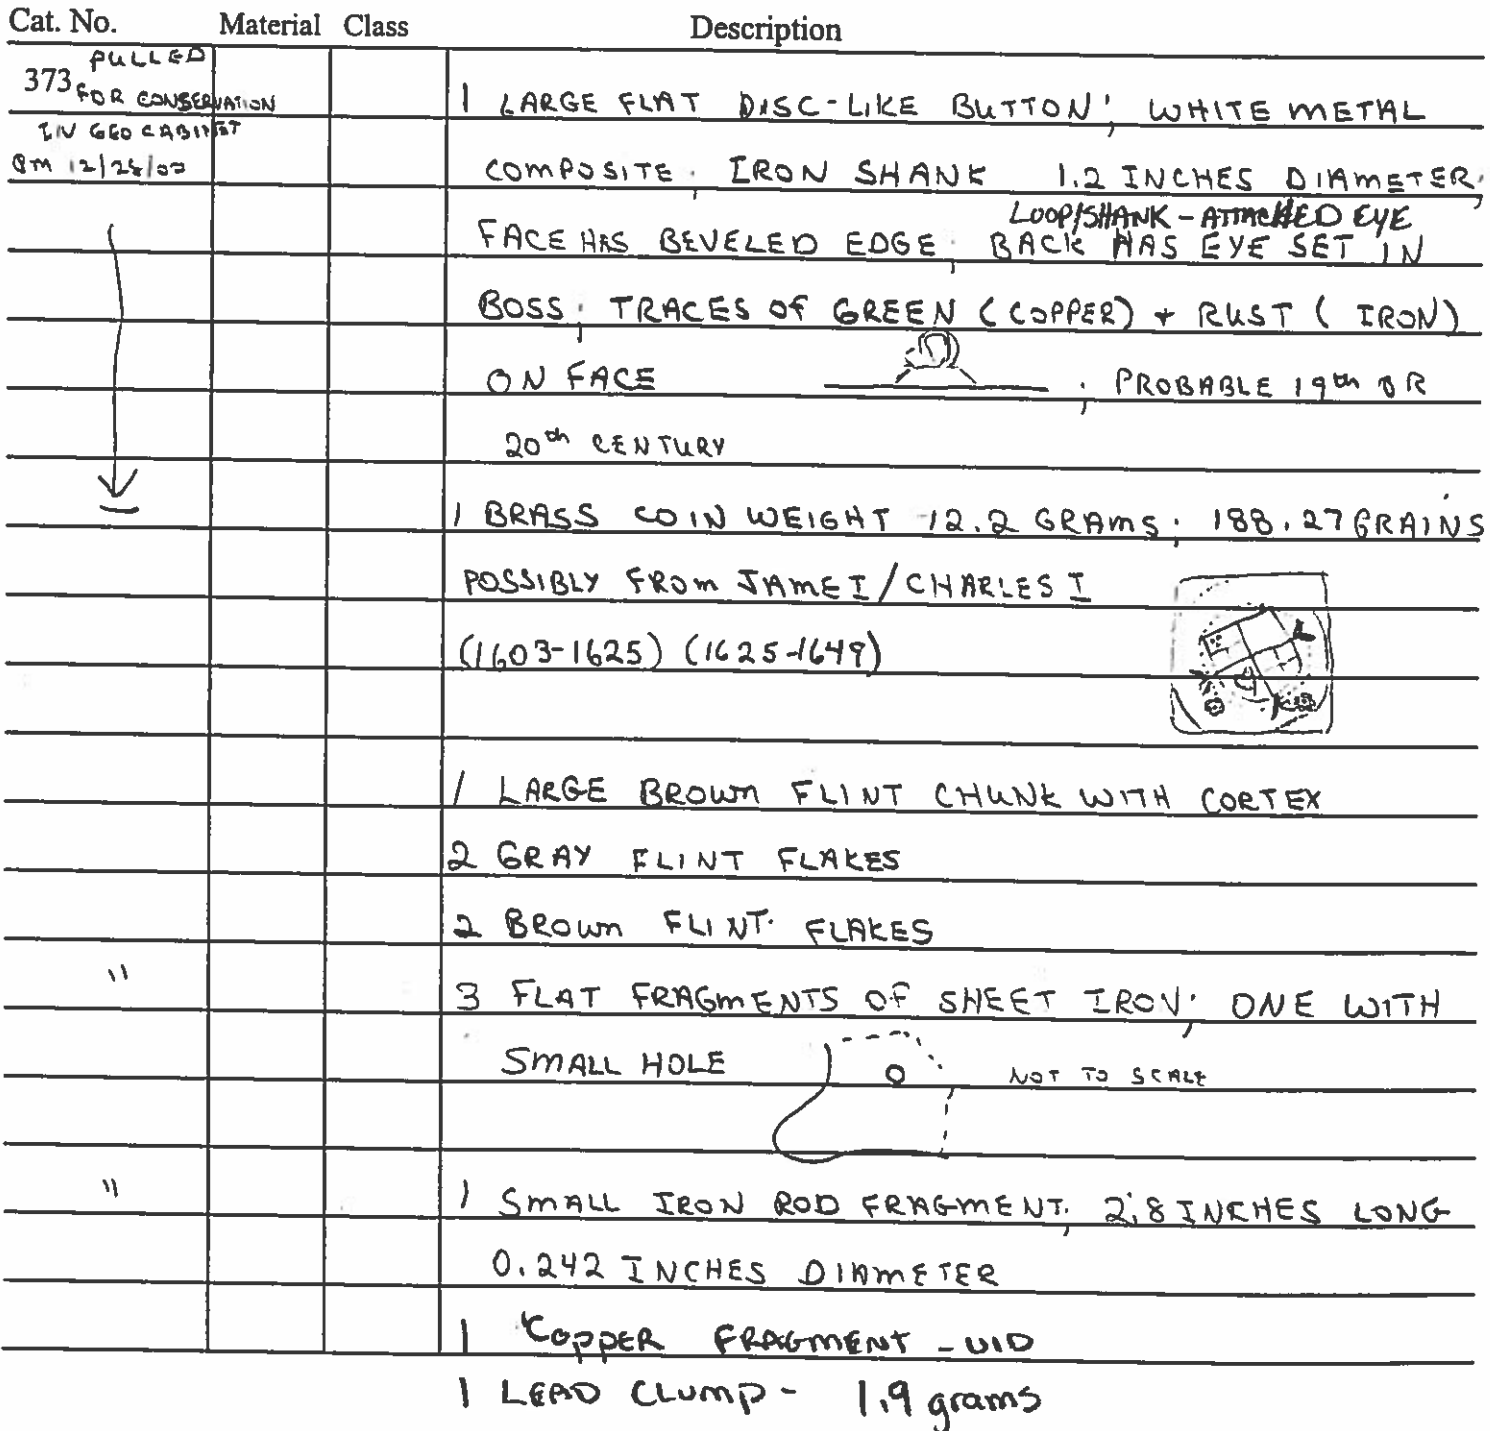 Cat. No. Material Class Description
PULLED
373 FOR CONSERVATION
1 LARGE FLAT DISC-LIKE BUTTON; WHITE METAL
IN GEO CABINET
12/28/
COMPOSITE; IRON SHANK 1.2 INCHES DIAMETER;
LOOP/SHANK - ATTACHED EYE
FACE HAS BEVELED EDGE; BACK HAS EYE SET IN
BOSS; TRACES OF GREEN (COPPER) + RUST (IRON)
ON FACE ; PROBABLE 19th OR
20th CENTURY
1 BRASS COIN WEIGHT 12.2 GRAMS; 188.27 GRAINS
POSSIBLY FROM JAME I / CHARLES I
(1603-1625) (1625-1649)
1 LARGE BROWN FLINT CHUNK WITH CORTEX
2 GRAY FLINT FLAKES
2 BROWN FLINT FLAKES
" 3 FLAT FRAGMENTS OF SHEET IRON; ONE WITH
SMALL HOLE NOT TO SCALE
" 1 SMALL IRON ROD FRAGMENT; 2.8 INCHES LONG
0.242 INCHES DIAMETER
1 COPPER FRAGMENT - UID
1 LEAD CLUMP - 1.9 grams